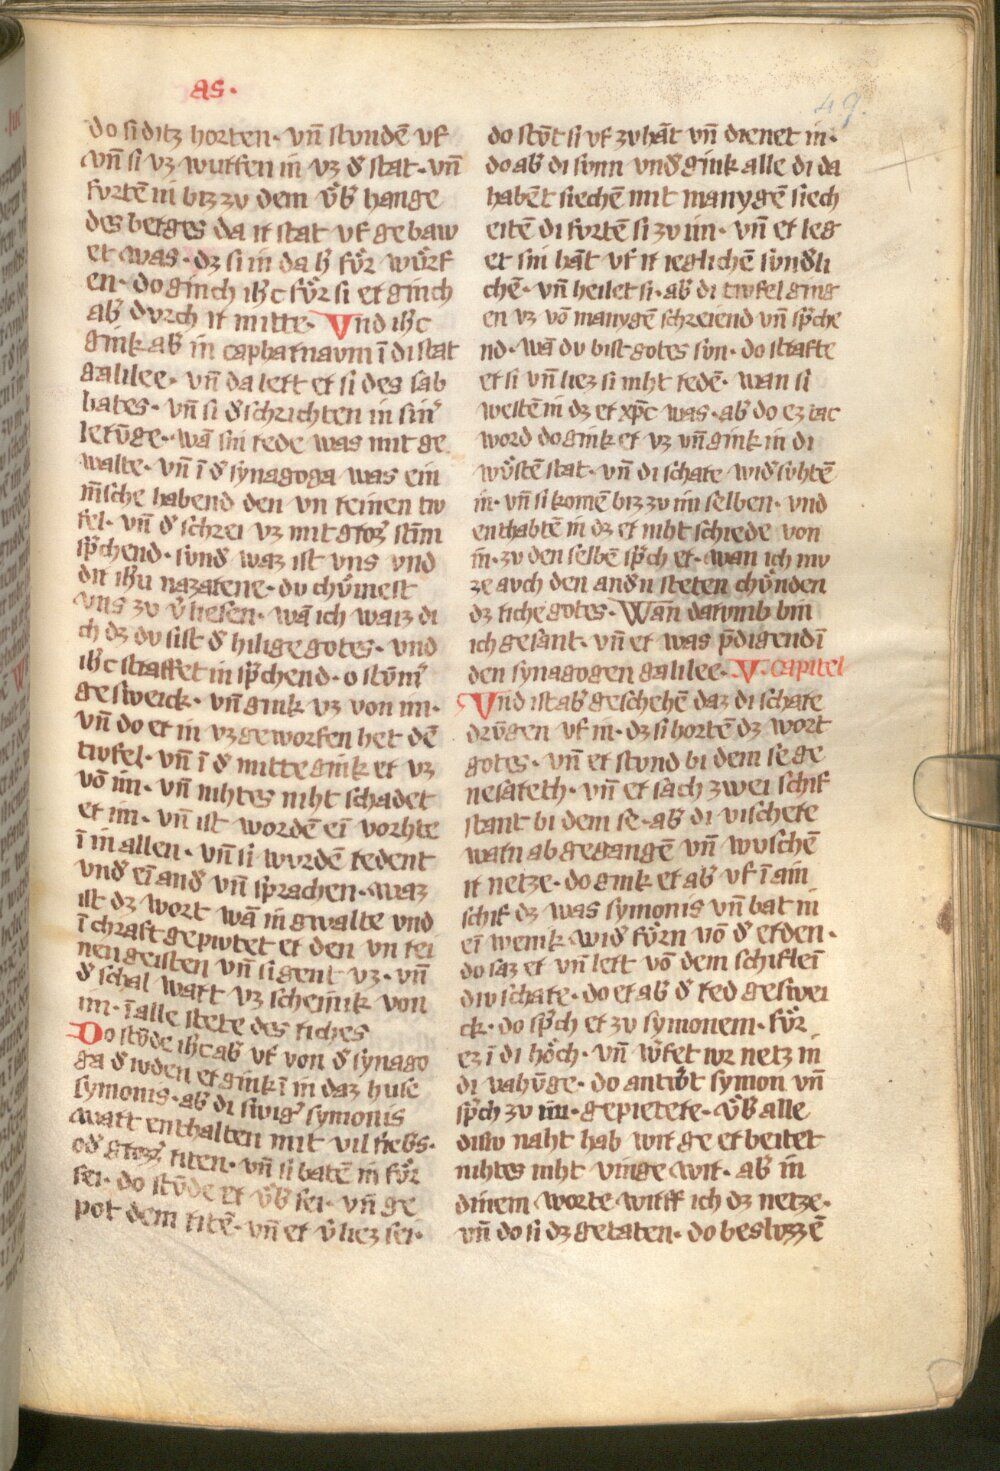 as.
49.
do si ditz horten· vn̄ stvndē vf
vn̄ si vz wurfen in vz d̾ stat· vn̄
furtē in biz zv dem v̾b̾ hange
des berges da ir stat vf gebaw
et was· dz si in da h̾ fu̍r wu̍rf
en· do ginch ih̄c fu̍r si er ginch
ab̾ dvrch ir mitte· Vnd ih̄c
gink ab̾ in capharnavm ī di stat
galilee· vn̄ da lert er si des sab
bates· vn̄ si d̾schrichten in sin̾
lerv̄ge· wā sin rede was mit ge
walte· vn̄ ī d̾ synagoga was ein
m̄sche habend den vn reinen tiv
fel· vn̄ d̾ schrei vz mit groz̾ stīm
sp̾chend· svnd̾ waz ist vns vnd
dir ih̄u nazarene· dv chv̍mest
vns zv v̾liesen· wā ich waiz di
ch dz dv sist d̾ hilige gotes· vnd
ih̄c straffet in sp̾chend· o stv̄m̾
gesweick· vn̄ gink vz von im·
vn̄ do er in vzgeworfen het dē
tivfel· vn̄ ī d̾ mitte gink er vz
vō im· vn̄ nihtes niht schadet
er im· vn̄ ist wordē eī vorhte
ī in allen· vn̄ si wurdē redent
vnd̾ eī and̾ vn̄ sprachen· waz
ist dz wort wā in gwalte vnd
ī chraft gepivtet er den vn rei
nen geisten vn̄ si gent vz· vn̄
d̾ schal wart vz scheinik von
im· ī alle stete des riches
Do stv̄de ih̄c ab̾ vf von d̾ synago
ga d̾ ivden er gink ī in daz huse
symonis· ab̾ di swig̾ symonis
wart enthalten mit vil fieb̾s·
od̾ groz̾ riten· vn̄ si batē in fu̍r
sei· do stv̄de er v̾b̾ sei· vn̄ ge
pot dem ritē· vn̄ er v̾liez sei·
do stv̄t si vf zvhāt vn̄ dienet in·
do ab̾ di svnn vnd̾gink alle di da
habēt siechē mit manygē siech
eitē di furtē si zv im· vn̄ er leg
et sin hāt vf ir ieglichē svnd̾li
chē· vn̄ heilet si· ab̾ di tivfel ging
en vz vō manygē schreiend vn̄ sp̾che
nd· wā dv bist gotes svn· do strafte
er si vn̄ liez si niht redē· wan si
westē in dz er xp̄c was· ab̾ do ez tac
word do gink er vz vn̄ gink in di
wv̍stē stat· vn̄ di schare wid̾svhtē
in· vn̄ si komē biz zv im selben· vnd
enthabtē in dz er niht schiede von
in· zv den selbē sp̾ch er· wan ich mv
ze avch den and̾n steten chv̍nden
dz riche gotes· Wan darvmb bin
ich gesant· vn̄ er was p̾digend ī
den synagogen galilee· V· capitel
Vnd ist ab̾ geschehē daz di schare
drv̄gen vf in· dz si hortē dz wort
gotes· vn̄ er stvnd bi dem se ge
nesareth· vn̄ er sach zwei schif
stant bi dem se· ab̾ di vischere
warn ab gegangē vn̄ wuschē
ir netze· do gink er ab̾ vf ī ain
schif dz was symonis vn̄ bat in
eī wenik wid̾ fu̍rn vō d̾ erden·
do saz er vn̄ lert vō dem schifleī
div schare· do er ab̾ d̾ red geswei
ck· do sp̾ch er zv symonem· fu̍r
ez ī di ho̍ch· vn̄ w̾fet ivr netz in
di vahv̄ge· do antw̾t symon vn̄
sp̾ch zv im· gepietere· v̾b̾ alle
disiv naht hab wir ge erbeitet
nihtes niht vinge wir· ab̾ in
dinem worte wirff ich dz netze·
vn̄ do si dz getaten· do beslvzzē